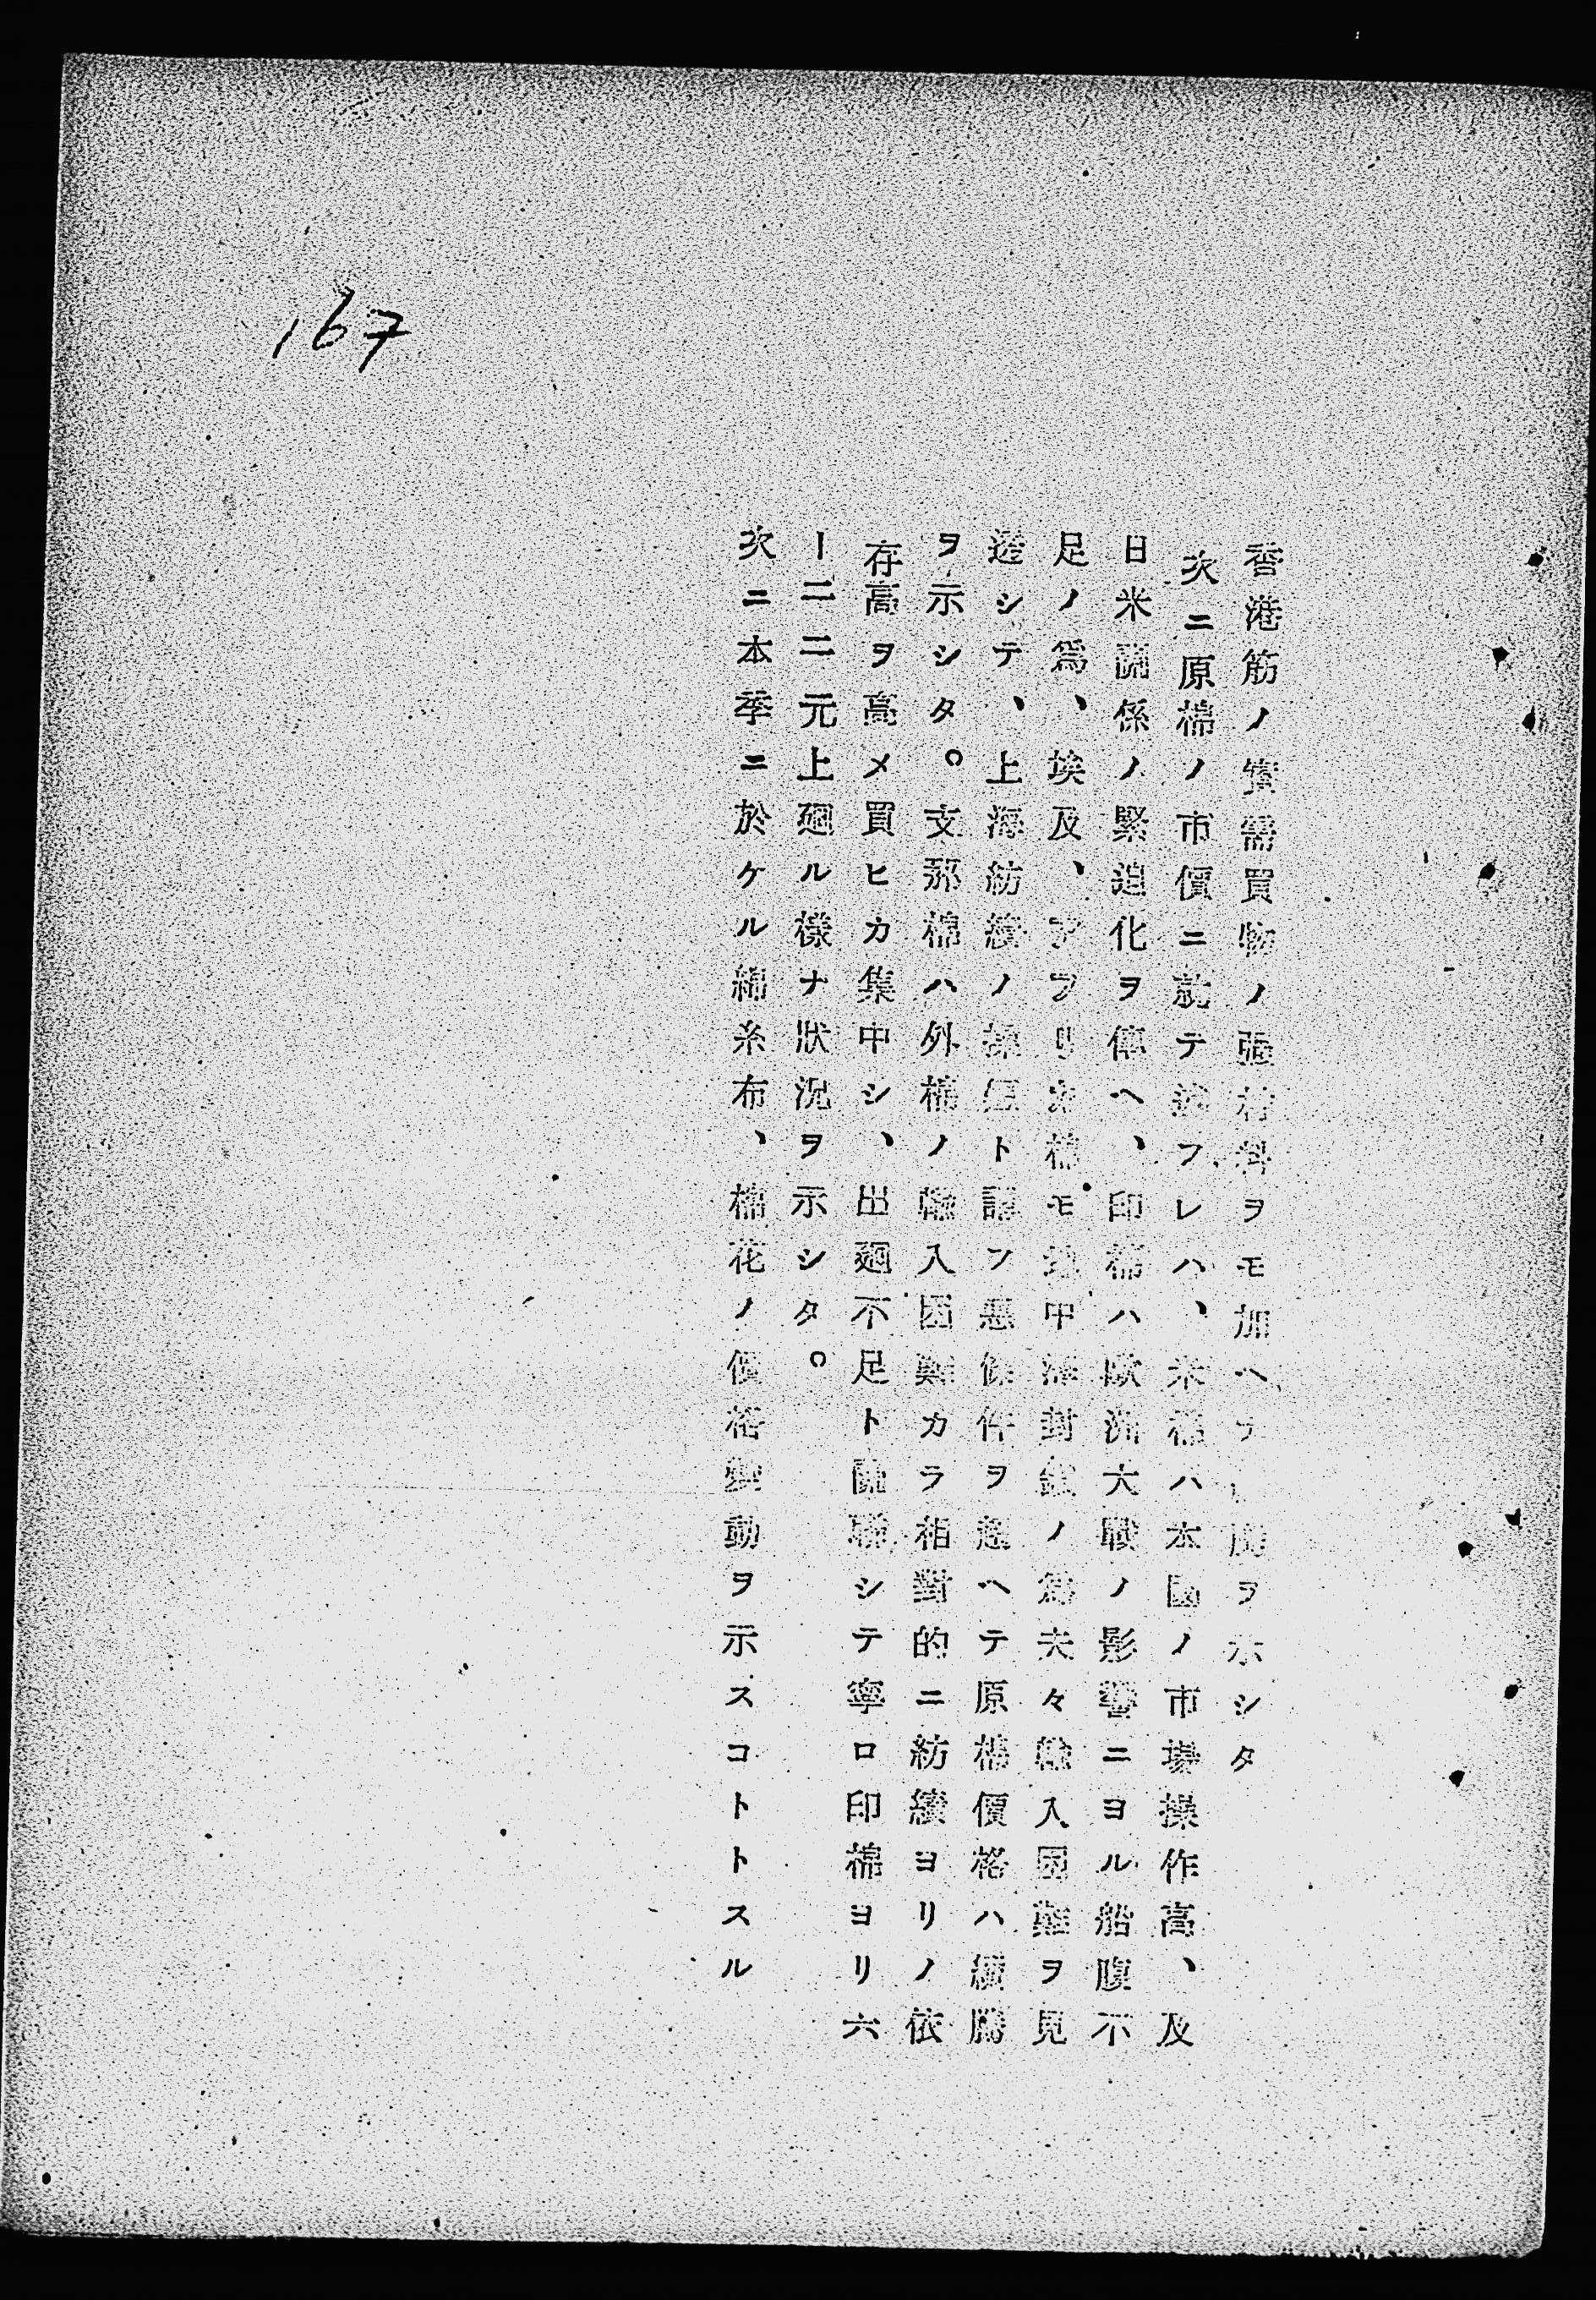 167
香港筋ノ實需買物ノ强材料ヲモ加ヘテ騰ヲ示シタ
次ニ原棉ノ市價ニ就テ云フレハ、米棉ハ本國ノ市場操作高、及
日米關係ノ緊迫化ヲ傳ヘ、印棉ハ歐洲大戰ノ影響ニヨル船腹不
足ノ爲、埃及、アフリカ棉モ地中海封鎖ノ爲夫々輸入困難ヲ見
シテ、上海紡績ノ操短ト謂フ惡條件ヲ越ヘテ原棉價格ハ續騰
ヲ示シタ。支那棉ハ外棉ノ輸入困難カラ相對的ニ紡績ヨリノ依
存高ヲ高メ買ヒカ集中シ、出廻不足ト關聯シテ寧ロ印棉ヨリ六
ー二二元上廻ル樣ナ狀況ヲ示シタ。
次ニ本季ニ於ケル綿糸布、棉花ノ價格變動ヲ示スコトトスル